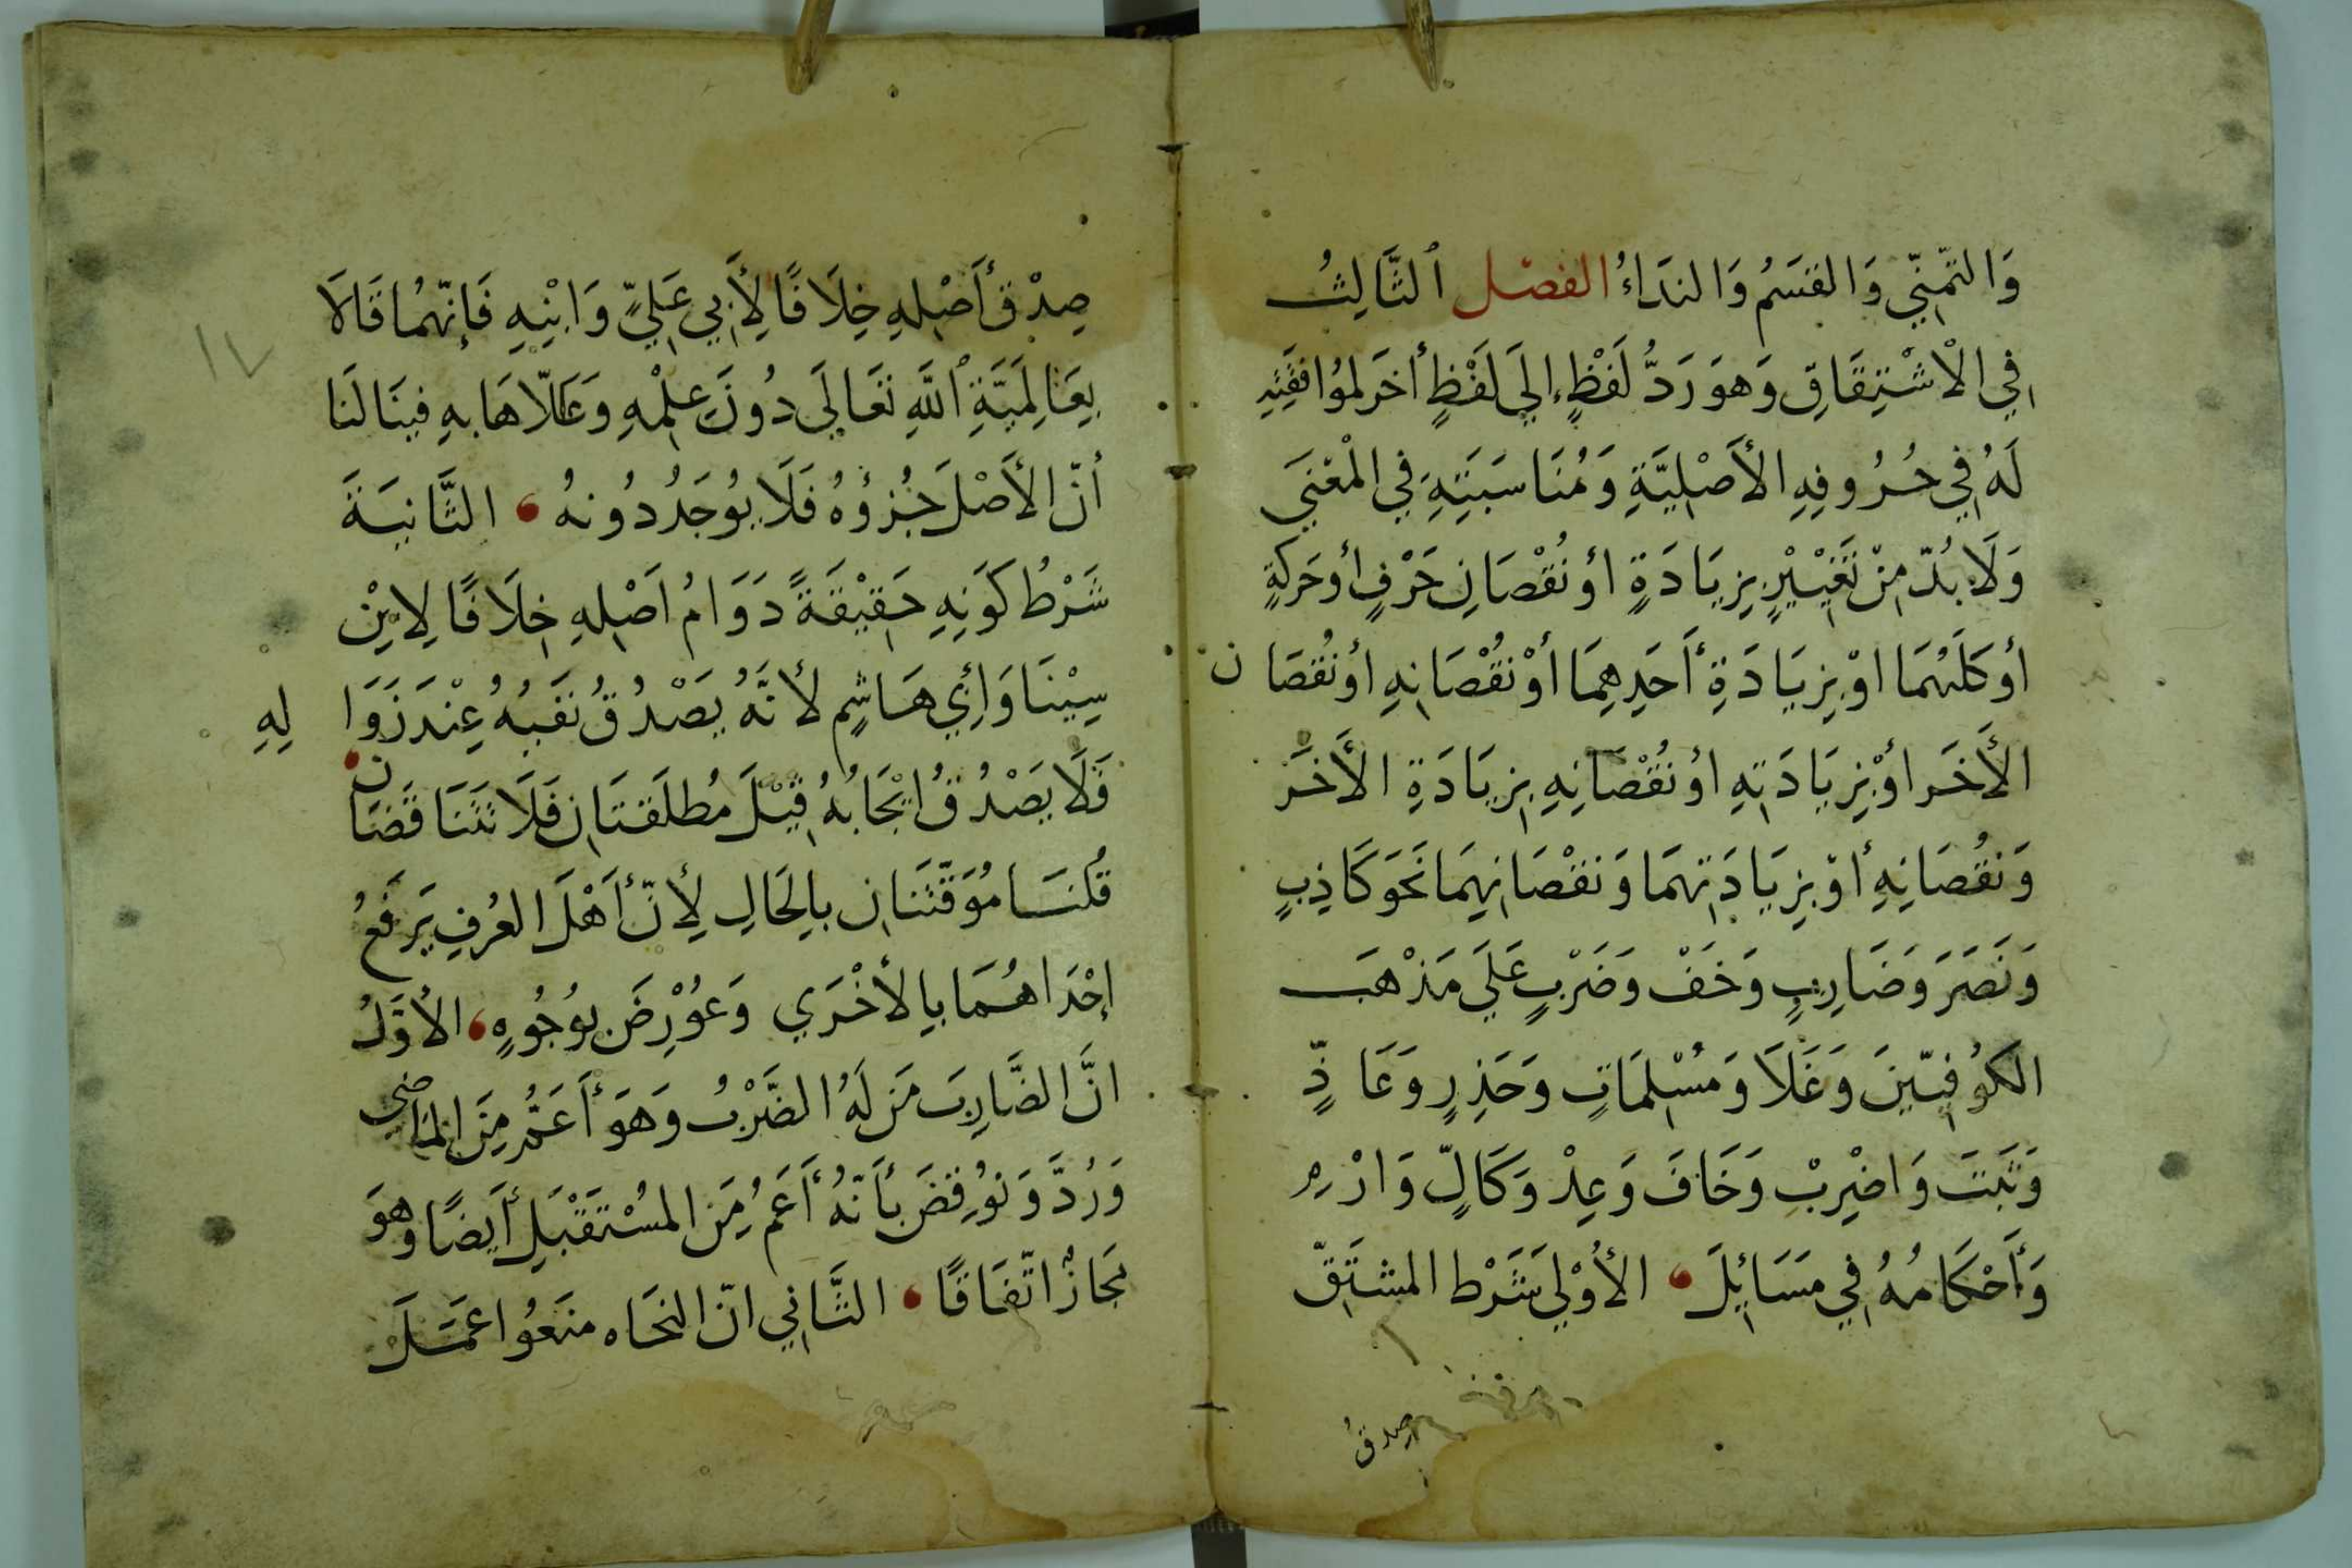 وَالتَّمَنِّي وَالقَسَمُ وَالندَاءُ الفصْل ٱلثَّالِثُ
فِي الْاشْتِقَاقِ وَهوَ رَدُّ لَفْظٍ إلَي لَفْظٍ أخَر لموُافقَتِهِ
لَهُ فِي حُرُوفِهِ الأَصْلِيَّةِ وَمُنَاسَبَتِهِ فِي المَعْنَي
وَلَا بُدّ مِنْ تَغْيِيْرٍ بِزِيَادَةٍ أو نُقْصَانِ حَرْفٍ أوحَركَةٍ
أوكلَيْهمَا اوْ بِزِيَادَةِ أَحَدِهِمَا أوْ نُقْصَانِهِ اوْ نُقصَان
الأَخَر اوْ بِزِيَادَتهِ اوْ نُقْصَانِهِ بِزِيَادَةِ الأَخَر
وَنقُصَانِهِ أوْ بِزِيَادَتهمَا وَنقْصَانِهِمَا نَحوَ كَاذِبٍ
وَنَصَرَ وَضَارِبٍ وَخَفْ وَضَرْبٍ عَلَي مَذْهَب
الكوُفِيّينَ وَغَلَا وَمُسْلِمَاتٍ وَحَذِرٍ وَعَاذٍّ
وَنَبَتَ وَاضْرِبْ وَخَافَ وَعِدْ وَكَالٍّ وَارْمِ
وَأَحْكَامُهُ فِي مَسَائِلَ الأُوْلي شَرْط المشتَقّ
صِدقُ
١٧
صِدْق أَصْلِهِ خِلَافًا لِأَبِي عَلِيٍّ وَابْنِهِ فَإنّهمُا قَالَا
بِعَالِمَيّةِ ٱللَّهِ تَعَالَي دُونَ عِلْمِهِ وَعَلّلاهَا بهِ فِينَا لَنا
أنّ الأَصْلَ جُزؤُهُ فَلَا يوُجَدُ دُونهُ الثَّانيَةَ
شَرْطُ كَوَنِهِ حَقِيْقَةً دَوَامُ اَصْلِهِ خِلَافًا لِابْنِ
سِيْنَا وَأَبِي هَاشِمٍ لأنَّهُ يَصْدُقُ نَفْيُهُ عِنْدَ زَوَا لِهِ
فَلَا يَصْدُقُ ايْجَابُهُ قِيْلَ مُطلَقتَانِ فَلَا تَتَنَاقَضَان
قُلنَا مُؤَقَّتَتَانِ بِالحَالِ لِأنّ أَهْلَ العُرفِ يَرفَعُ
إحْدَاهُمَا بالأخْرَي وَعوُرِضَ بوُجُوهٍ الأوَّلُ
انَّ الضَّارِبَ مَن لَهُ الضَّرْبُ وَهوَ أَعَمُّ مِنَ الماضي
وَرُدَّ وَنوُقِضَ بأَنّهُ أَعَمُ مِنَ المُسْتَقْبَلِ أَيضًا وهوَ
مَجَازٌ اتّفَاقًا الثَّانِي انّ النحَاه منَعُوا عمَلَ